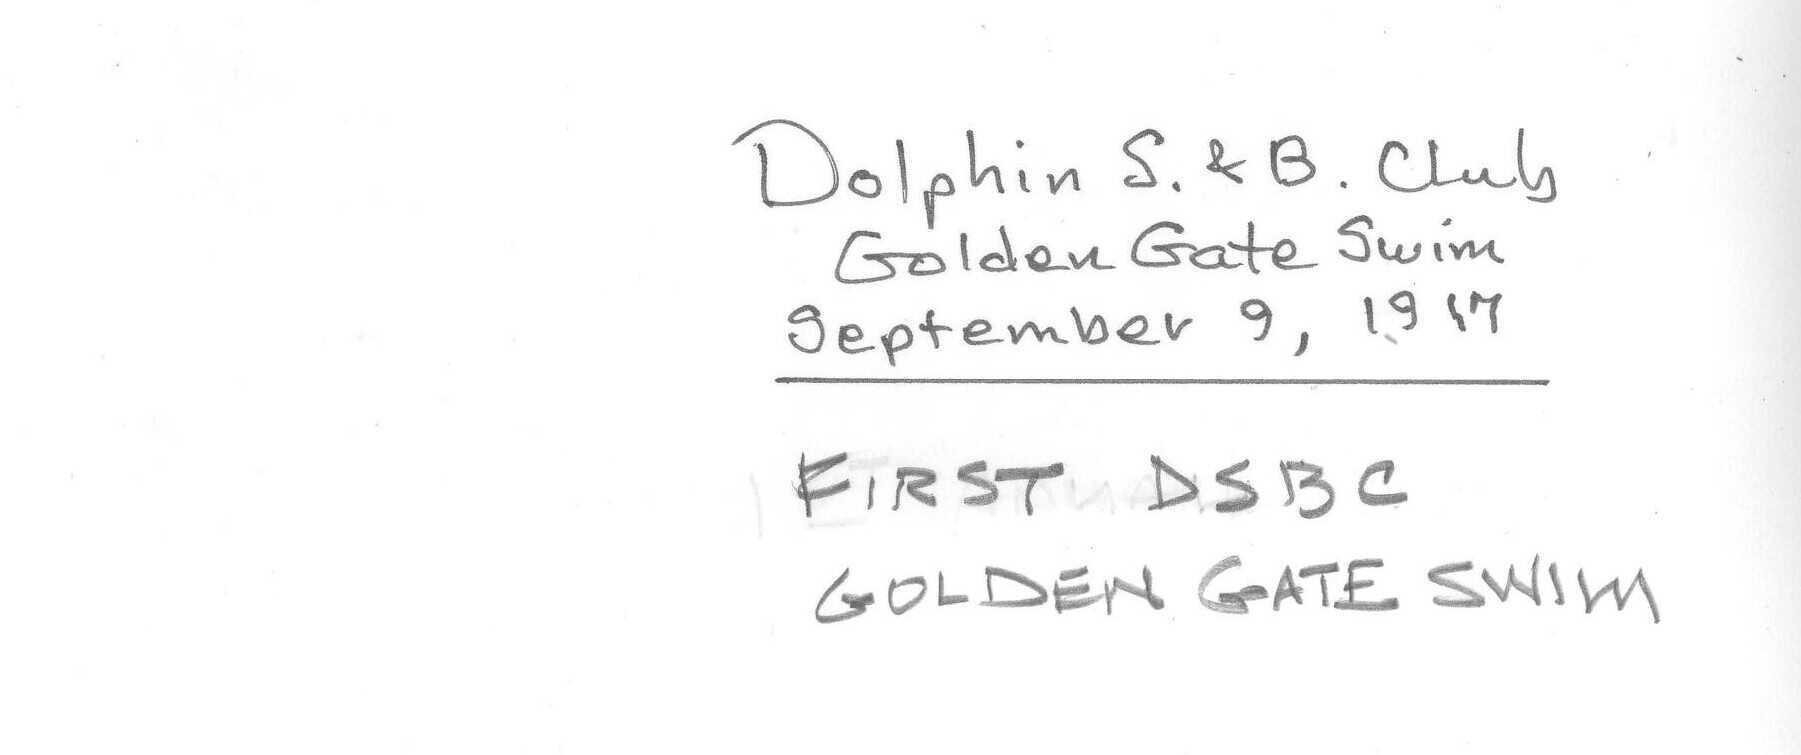 Dolphin S. & B. Club
Golden Gate Swim
September 9, 1917
FIRST DSBC
GOLDEN GATE SWIM